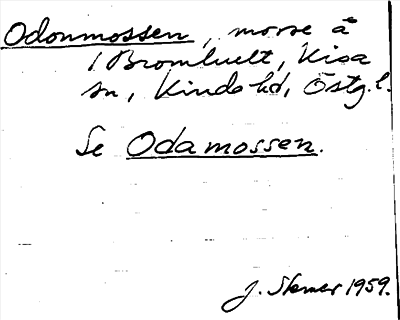 Odonmossen, mosse å
1 Bromhult, Kisa
sn, Kinda hd, Östg.l.
Se Odamossen.
J. 1959.